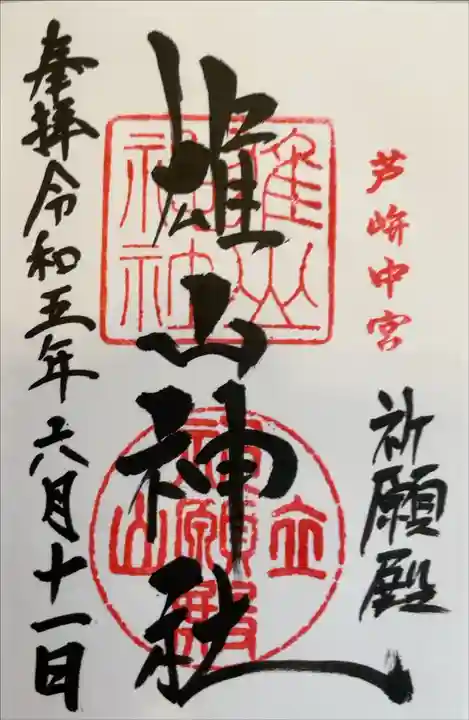 芦峅中宮
祈願殿
雄山神社
雄山神社
立山
祈願殿
奉拝令和五年六月十一日